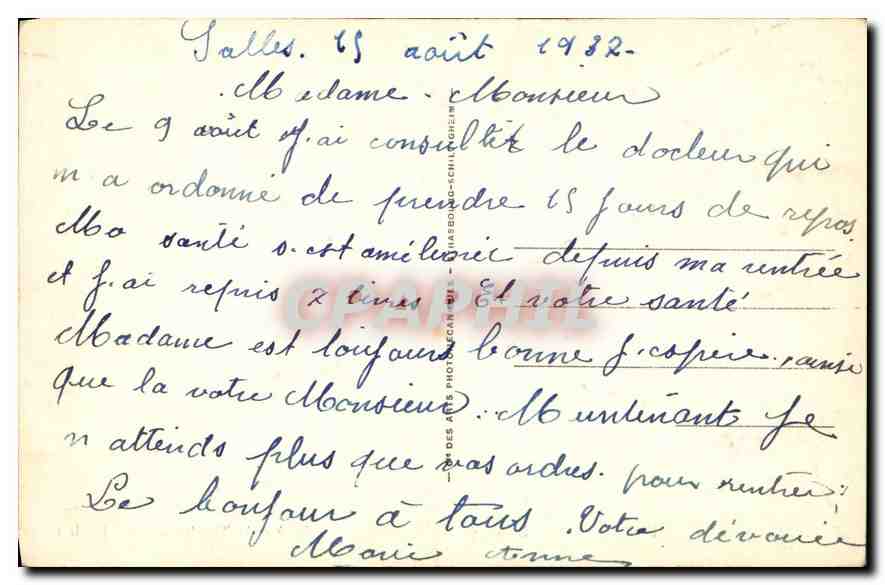 Salles. 15 août 1932-
Madame - Monsieur
Le 9 août J'ai consultér le docteur qui
m a ordonné de prendre 15 Jours de repos.
Ma santé s'est améliorée depuis ma rentrée
et J'ai repris 2 livres. Et votre santé
Madame est toujours bonne J'espère, ainsi
que la votre Monsieur. Muntenant Je
n attends plus que vos ordres. pour rentrer.
Le bonjour à tous. Votre dévouée
Marie Anne
DES ARTS PHOTOMECANIQUES - STRASBOURG-SCHILTIGHEIM
CPAPHIL